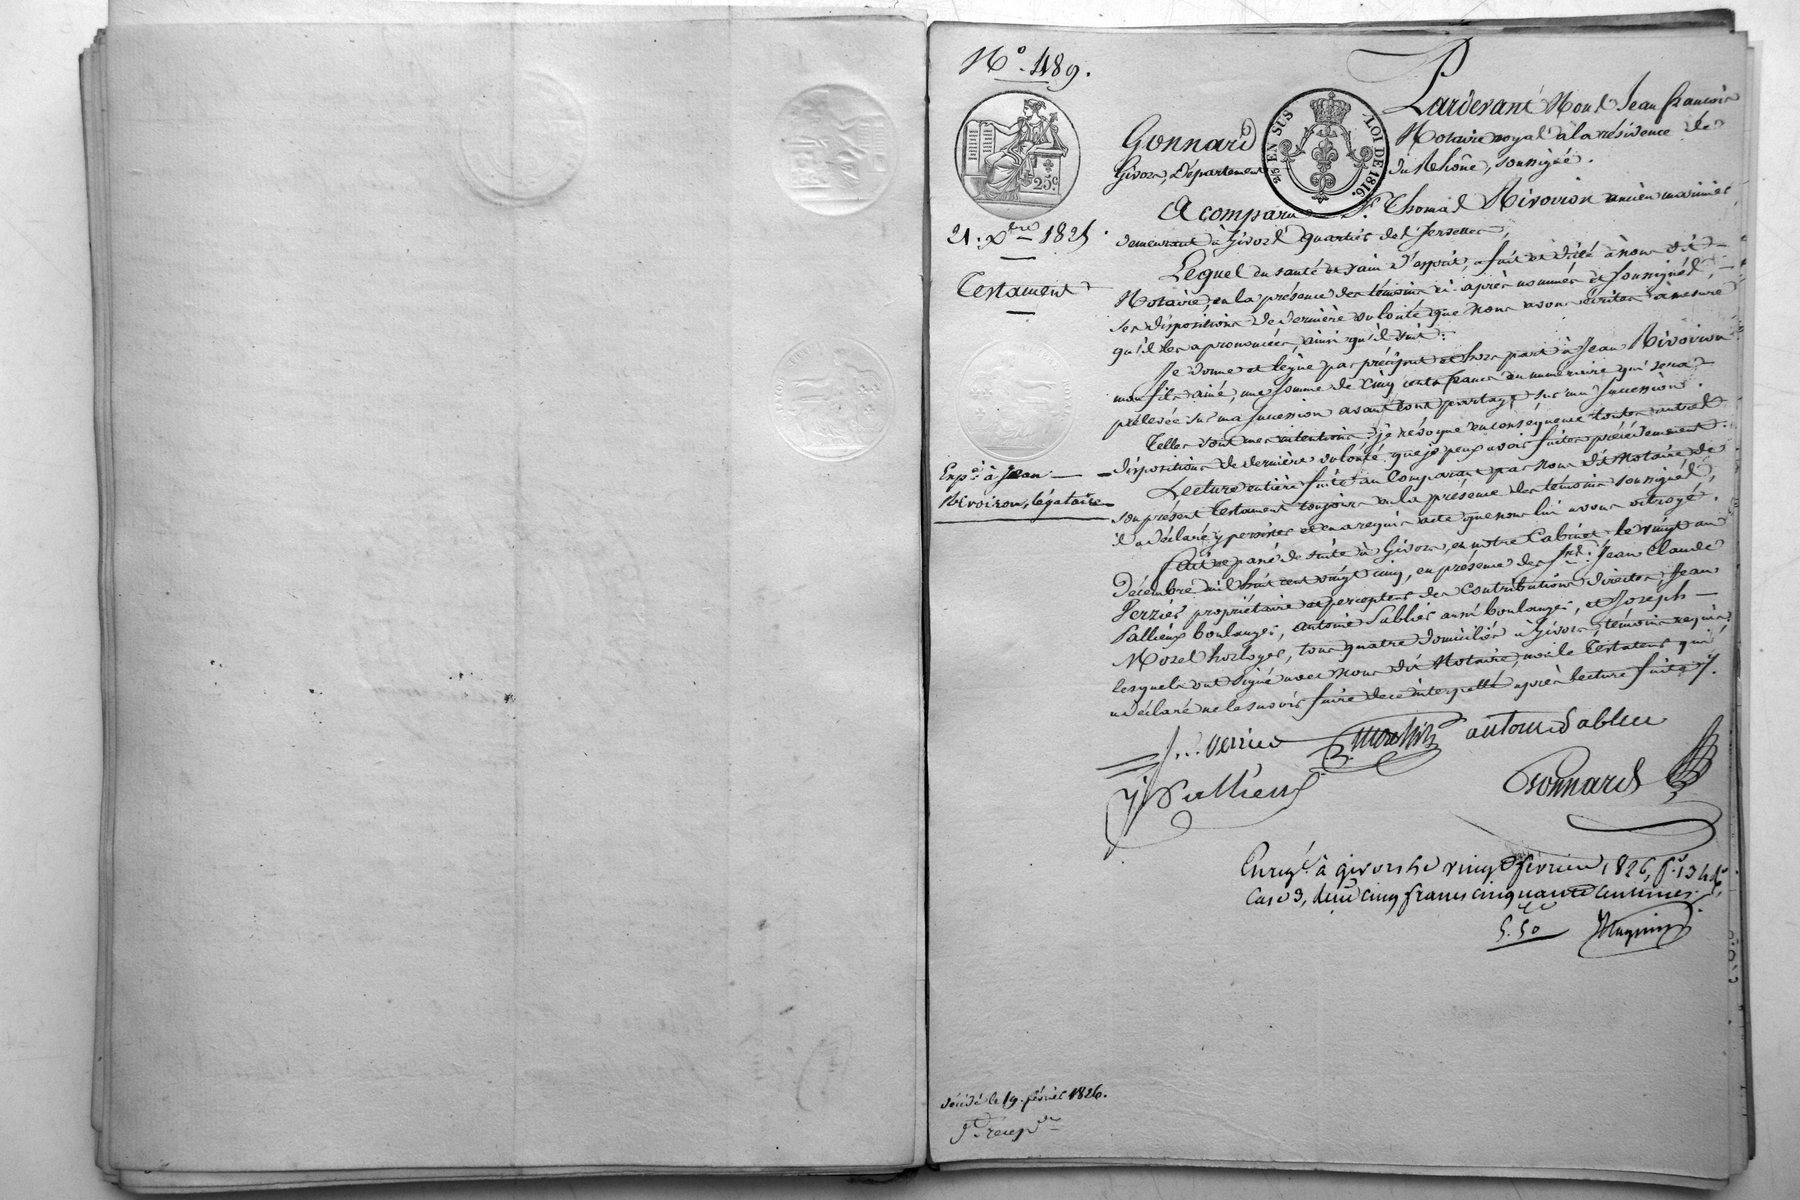 N.º 489.
Pardevant Nous Jean françois
Gonnard Notaire royal à la résidence de
Givors, Département du Rhône, soussigné.
25 EN SUS
LOI DE 1816.
25c
21. Xbre 1825
Testament
A comparu Sr. Thomas Rivoiron ancien marinier
demeurant à Givors quartier des
Lequel en santé et sain d'esprit, a fait et dicté à nous dit
Notaire, en la présence des témoins ci-après nommés et soussignés,
ses dispositions de dernière volonté que nous avons écrites à mesure
qu'il les a prononcées, ainsi qu'il suit:
Je donne et lègue par préciput et hors part à Jean Rivoiron
mon fils ainé, une somme de cinq cents francs en numéraire qui sera
prélevée sur ma succession avant tout partage sur ma succession.
Telles sont mes intentions; je révoque en conséquence toutes autres
dispositions de dernière volonté que je peux avoir faites précédemment.
Expé. à Jean
Rivoiron, légataire
Lecture entière faite au Comparant par nous dit Notaire de
son présent testament toujours en la présence des témoins soussignés,
il a déclaré y persister et en a requis acte que nous lui avons octroyé.
Fait et passé de suite à Givors, en notre Cabinet, le vingt un
Décembre mil huit cent vingt cinq, en présence des Srs. Jean Claude
Verrier propriétaire et percepteur des Contributions directes, Jean
Pallieux boulanger, Antoine Sablier aussi boulanger, et Joseph
Morel horloger, tous quatre domiciliés à Givors, témoins requis,
lesquels ont signé avec nous dit Notaire, non le Testateur qui
a déclaré ne le savoir faire de ce interpellé après lecture faite.
J. C. Verrier
antoine Sablier
J Pallieux
Gonnard
Enregé. à givors le vingt fevrier 1826, fo. 134
case 3, reçu cinq francs cinquante centimes.
5.50
décédé le 19. février 1826.